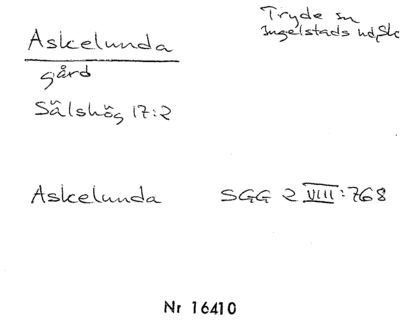 Askelunda
Tryde sn
Ingelstads hd, Sk
gård
Sälshög 17:2
Askelunda SGG 2 VIII:768
Nr 16410